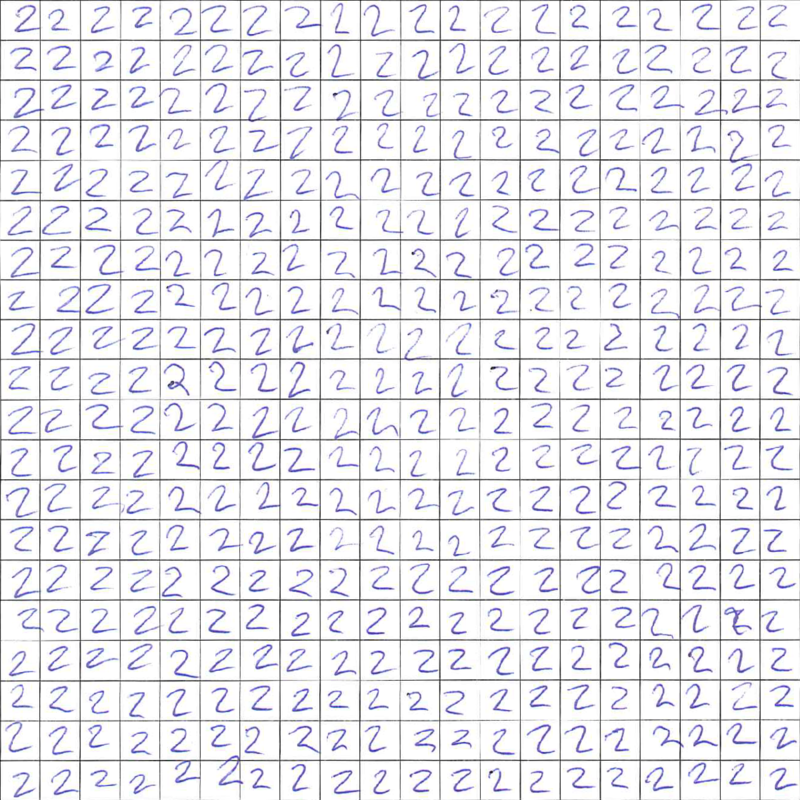 2 2 2 2 2 2 2 2 2 2 2 2 2 2 2 2 2 2 2 2
2 2 2 2 2 2 2 2 2 2 2 2 2 2 2 2 2 2 2 2
2 2 2 2 2 2 2 2 2 2 2 2 2 2 2 2 2 2 2 2
2 2 2 2 2 2 2 2 2 2 2 2 2 2 2 2 2 2 2 2
2 2 2 2 2 2 2 2 2 2 2 2 2 2 2 2 2 2 2 2
2 2 2 2 2 2 2 2 2 2 2 2 2 2 2 2 2 2 2 2
2 2 2 2 2 2 2 2 2 2 2 2 2 2 2 2 2 2 2 2
2 2 2 2 2 2 2 2 2 2 2 2 2 2 2 2 2 2 2 2
2 2 2 2 2 2 2 2 2 2 2 2 2 2 2 2 2 2 2 2
2 2 2 2 2 2 2 2 2 2 2 2 2 2 2 2 2 2 2 2
2 2 2 2 2 2 2 2 2 2 2 2 2 2 2 2 2 2 2 2
2 2 2 2 2 2 2 2 2 2 2 2 2 2 2 2 2 2 2 2
2 2 2 2 2 2 2 2 2 2 2 2 2 2 2 2 2 2 2 2
2 2 2 2 2 2 2 2 2 2 2 2 2 2 2 2 2 2 2 2
2 2 2 2 2 2 2 2 2 2 2 2 2 2 2 2 2 2 2 2
2 2 2 2 2 2 2 2 2 2 2 2 2 2 2 2 2 2 2 2
2 2 2 2 2 2 2 2 2 2 2 2 2 2 2 2 2 2 2 2
2 2 2 2 2 2 2 2 2 2 2 2 2 2 2 2 2 2 2 2
2 2 2 2 2 2 2 2 2 2 2 2 2 2 2 2 2 2 2 2
2 2 2 2 2 2 2 2 2 2 2 2 2 2 2 2 2 2 2 2